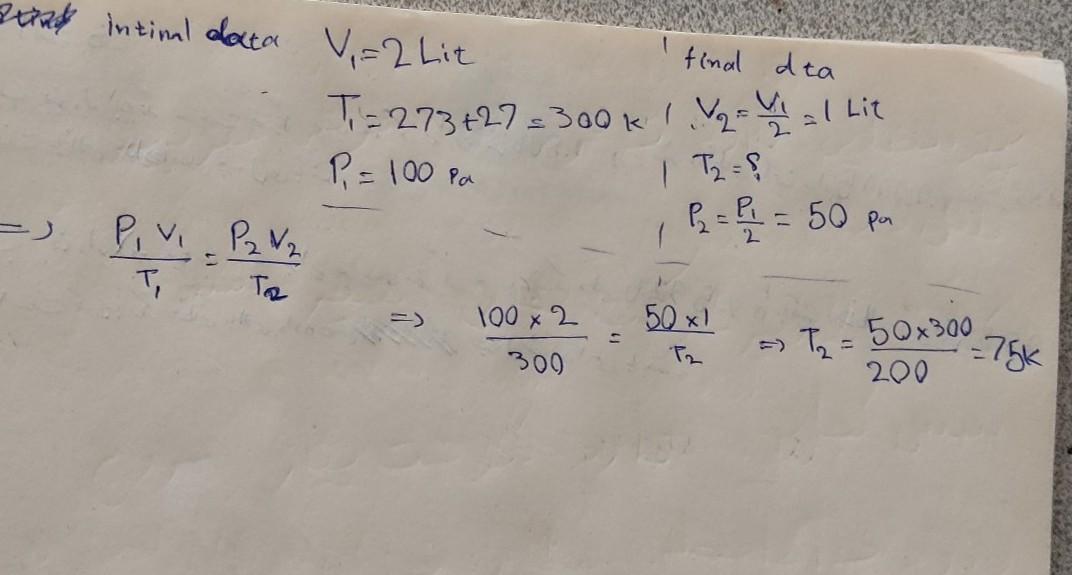 intinal data V₁=2 Lit final dta
T₁=273+27=300 K V₂=V₁/2=1 Lit
P₁=100 Pa T₂=?
P₂=P₁/2=50 pa
=> P₁V₁/T₁=P₂V₂/T₂
=> 100×2/300=50×1/T₂ => T₂=50×300/200=75K